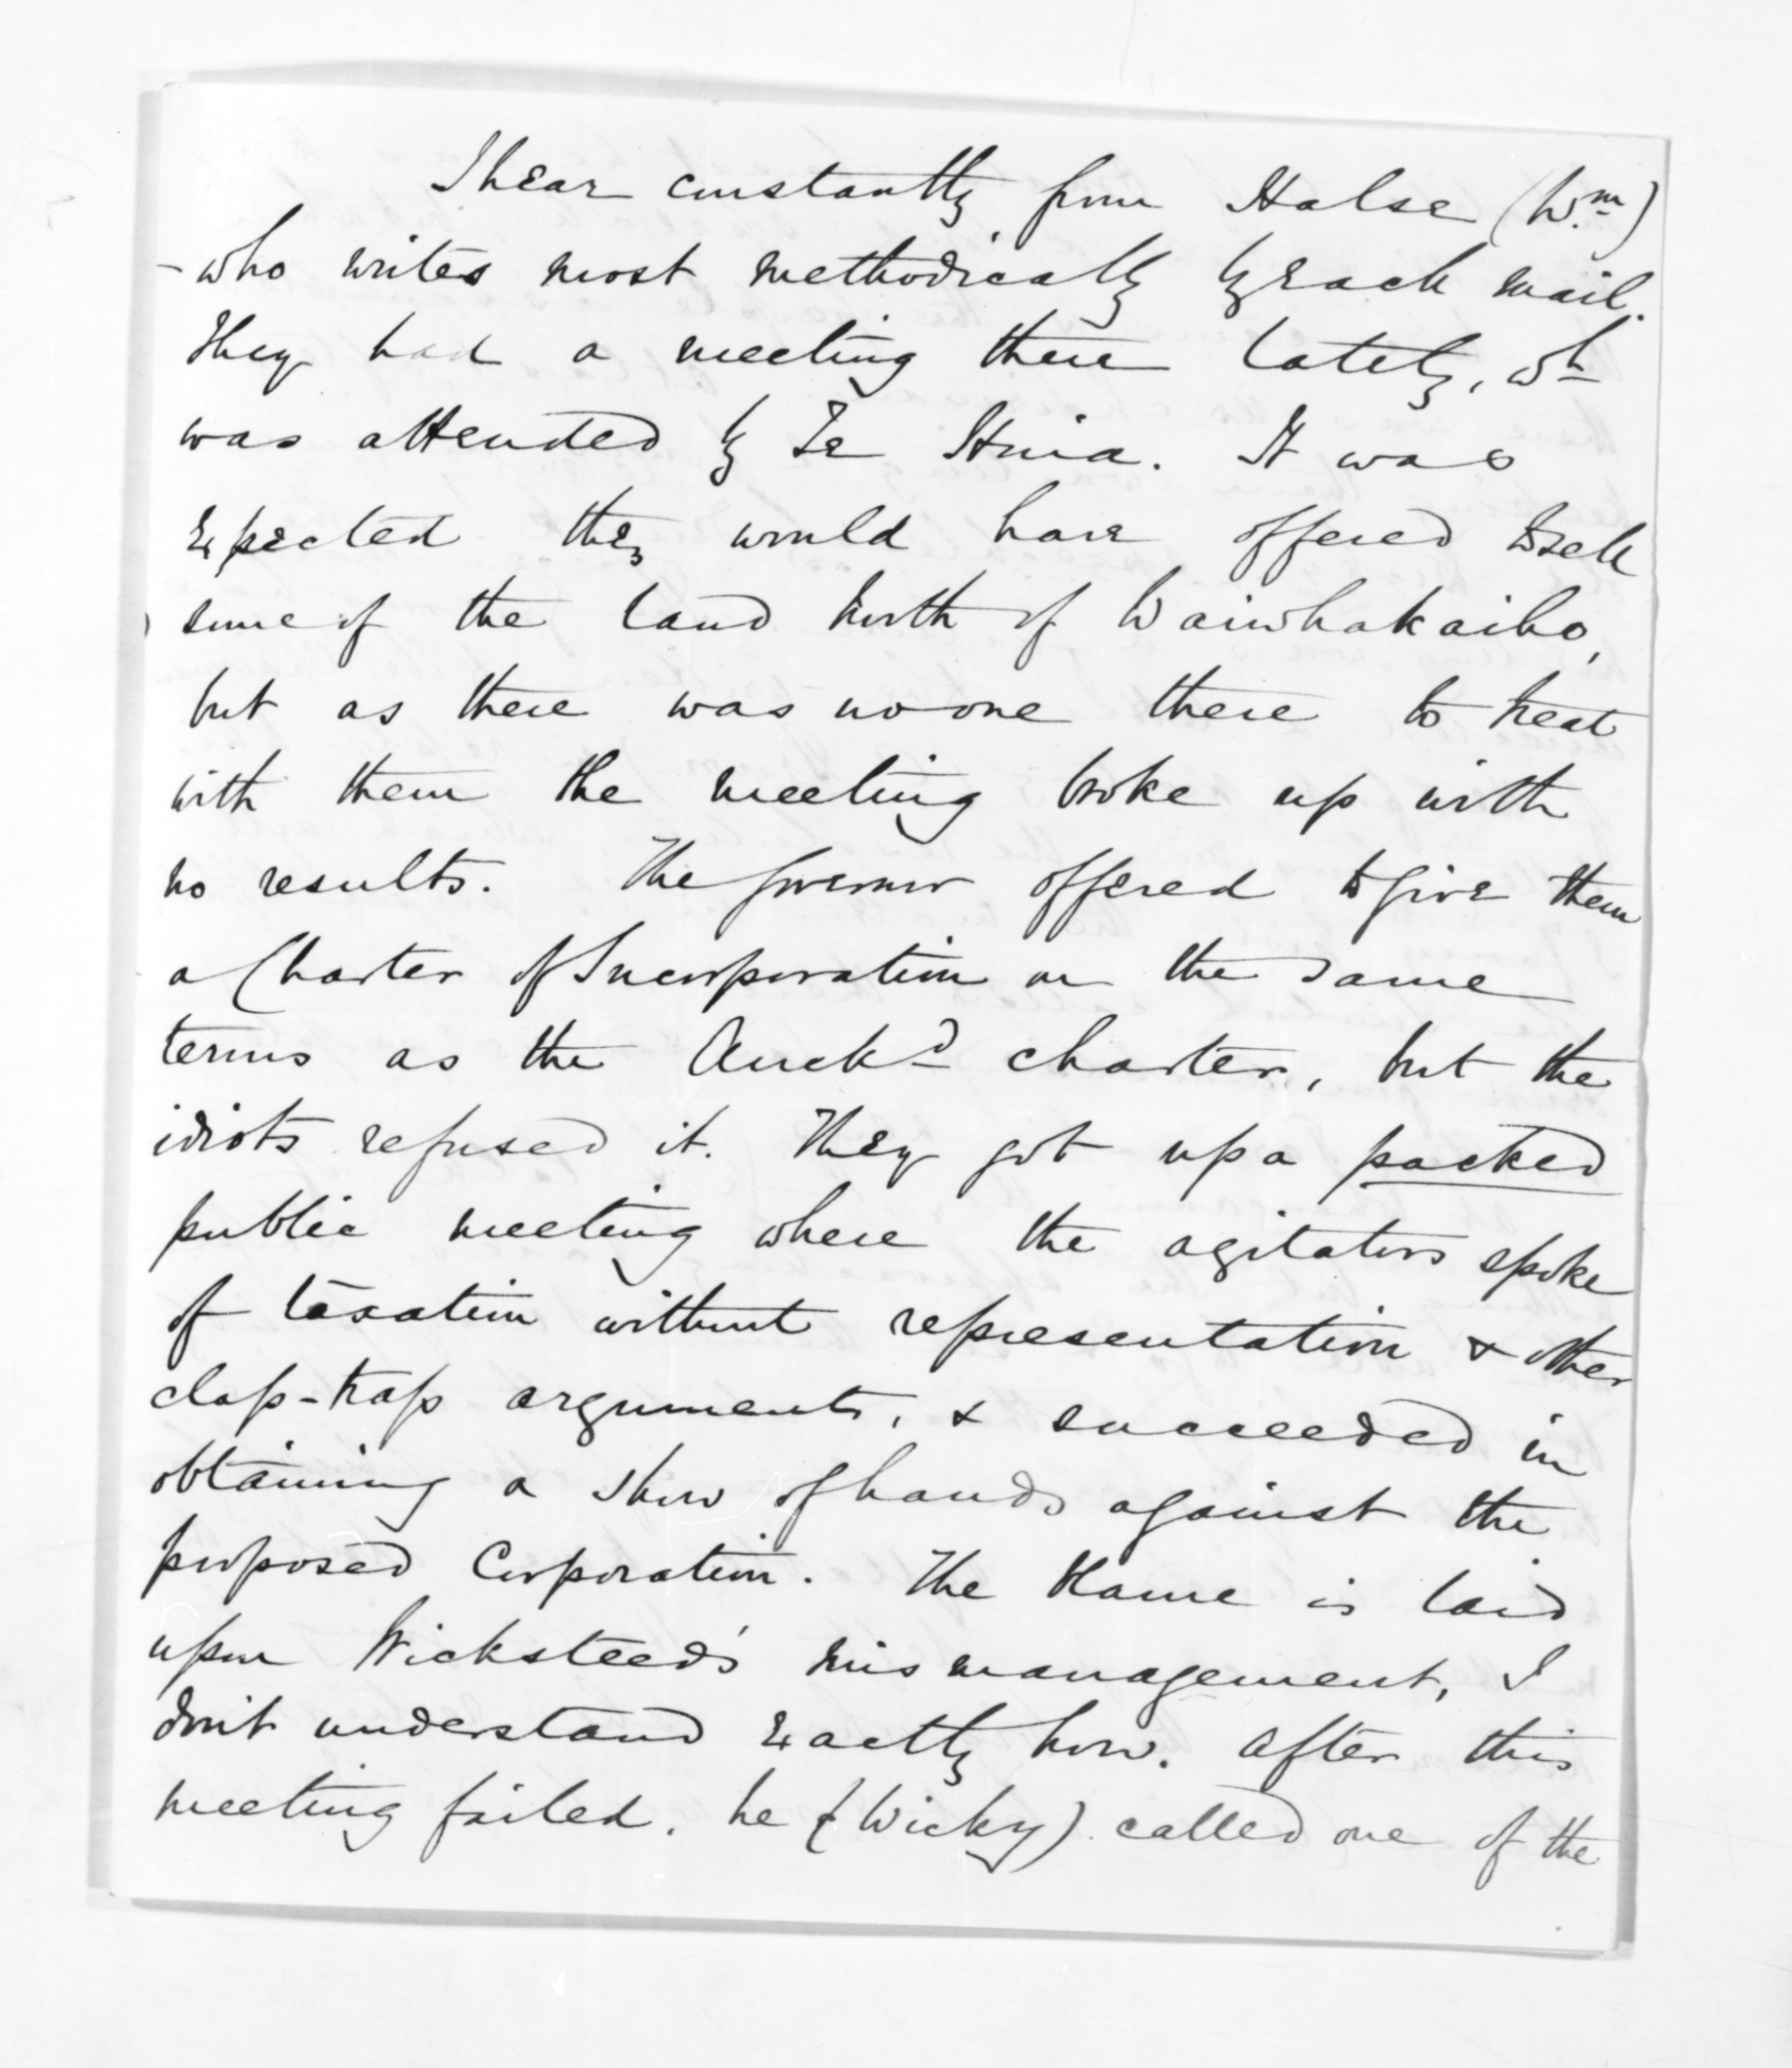 I hear constantly from Halse (Wm)
- who writes most methodically by each mail.
They had a meeting there lately, wh
was attended by Te Huia. It was
expected they would have offered to sell
some of the land north of Waiwhakaiho,
but as there was no one there to treat
with them the meeting broke up with
no results. The Governor offered to give them
a Charter of Incorporation on the same
terms as the Auckd charter, but the
idiots refused it. They got up a packed
public meeting where the agitators spoke
of taxation without representation & other
clap-trap arguments, & succeeded in
obtaining a show of hands against the
proposed Corporation. The blame is laid
upon Wicksteed's mismanagement, I
don't understand exactly how. After this
meeting failed, he (Wicky) called one of the